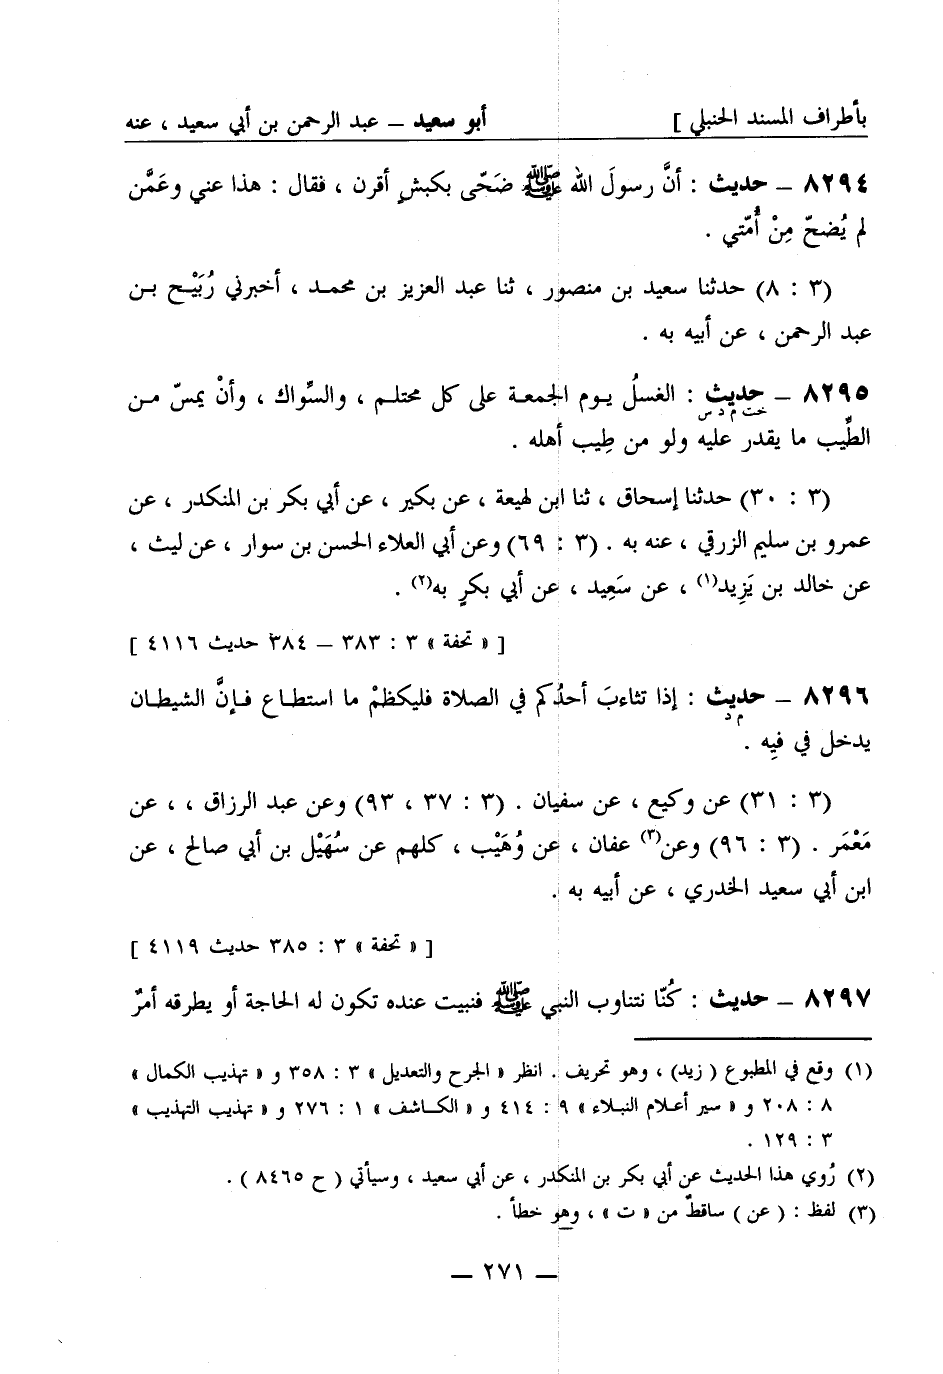 بأطراف المسند الحنبلي ] أبو سعيد – عبد الرحمن بن أبي سعيد ، عنه
٨٢٩٤ – حديث : أنَّ رسولَ الله ﷺ ضَحّى بكبشٍ أقرن ، فقال : هذا عني وعَمَّن
لم يُضحّ مِنْ أُمّتي .
(٣ : ٨) حدثنا سعيد بن منصور ، ثنا عبد العزيز بن محمد ، أخبرني رُبَيْح بن
عبد الرحمن ، عن أبيه به .
٨٢٩٥ – حديث : الغسلُ يوم الجمعة على كل محتلم ، والسِّواك ، وأنْ يمسّ من
خت م د س
الطِّيب ما يقدر عليه ولو من طِيب أهله .
(٣ : ٣٠) حدثنا إسحاق ، ثنا ابن لهيعة ، عن بكير ، عن أبي بكر بن المنكدر ، عن
عمرو بن سليم الزرقي ، عنه به . (٣ : ٦٩) وعن أبي العلاء الحسن بن سوار ، عن ليث ،
عن خالد بن يَزِيد(١) ، عن سَعِيد ، عن أبي بكرٍ به(٢) .
[ « تحفة » ٣ : ٣٨٣ – ٣٨٤ حديث ٤١١٦ ]
٨٢٩٦ – حديث : إذا تثاءبَ أحدُكم في الصلاة فليكظمْ ما استطاع فإنَّ الشيطان
م د
يدخل في فيِه .
(٣ : ٣١) عن وكيع ، عن سفيان . (٣ : ٣٧ ، ٩٣) وعن عبد الرزاق ، ، عن
مَعْمَر . (٣ : ٩٦) وعن(٣) عفان ، عن وُهَيْب ، كلهم عن سُهَيْل بن أبي صالح ، عن
ابن أبي سعيد الخدري ، عن أبيه به .
[ « تحفة » ٣ : ٣٨٥ حديث ٤١١٩ ]
٨٢٩٧ – حديث : كُنّا نتناوب النبي ﷺ فنبيت عنده تكون له الحاجة أو يطرقه أمرٌ
(١) وقع في المطبوع ( زيد) ، وهو تحريف . انظر « الجرح والتعديل » ٣ : ٣٥٨ و « تهذيب الكمال »
٨ : ٢٠٨ و « سير أعلام النبلاء » ٩ : ٤١٤ و « الكاشف » ١ : ٢٧٦ و « تهذيب التهذيب »
٣ : ١٢٩ .
(٢) رُوي هذا الحديث عن أبي بكر بن المنكدر ، عن أبي سعيد ، وسيأتي ( ح ٨٤٦٥ ) .
(٣) لفظ : ( عن ) ساقطٌ من « ت » ، وهو خطأ .
– ٢٧١ –